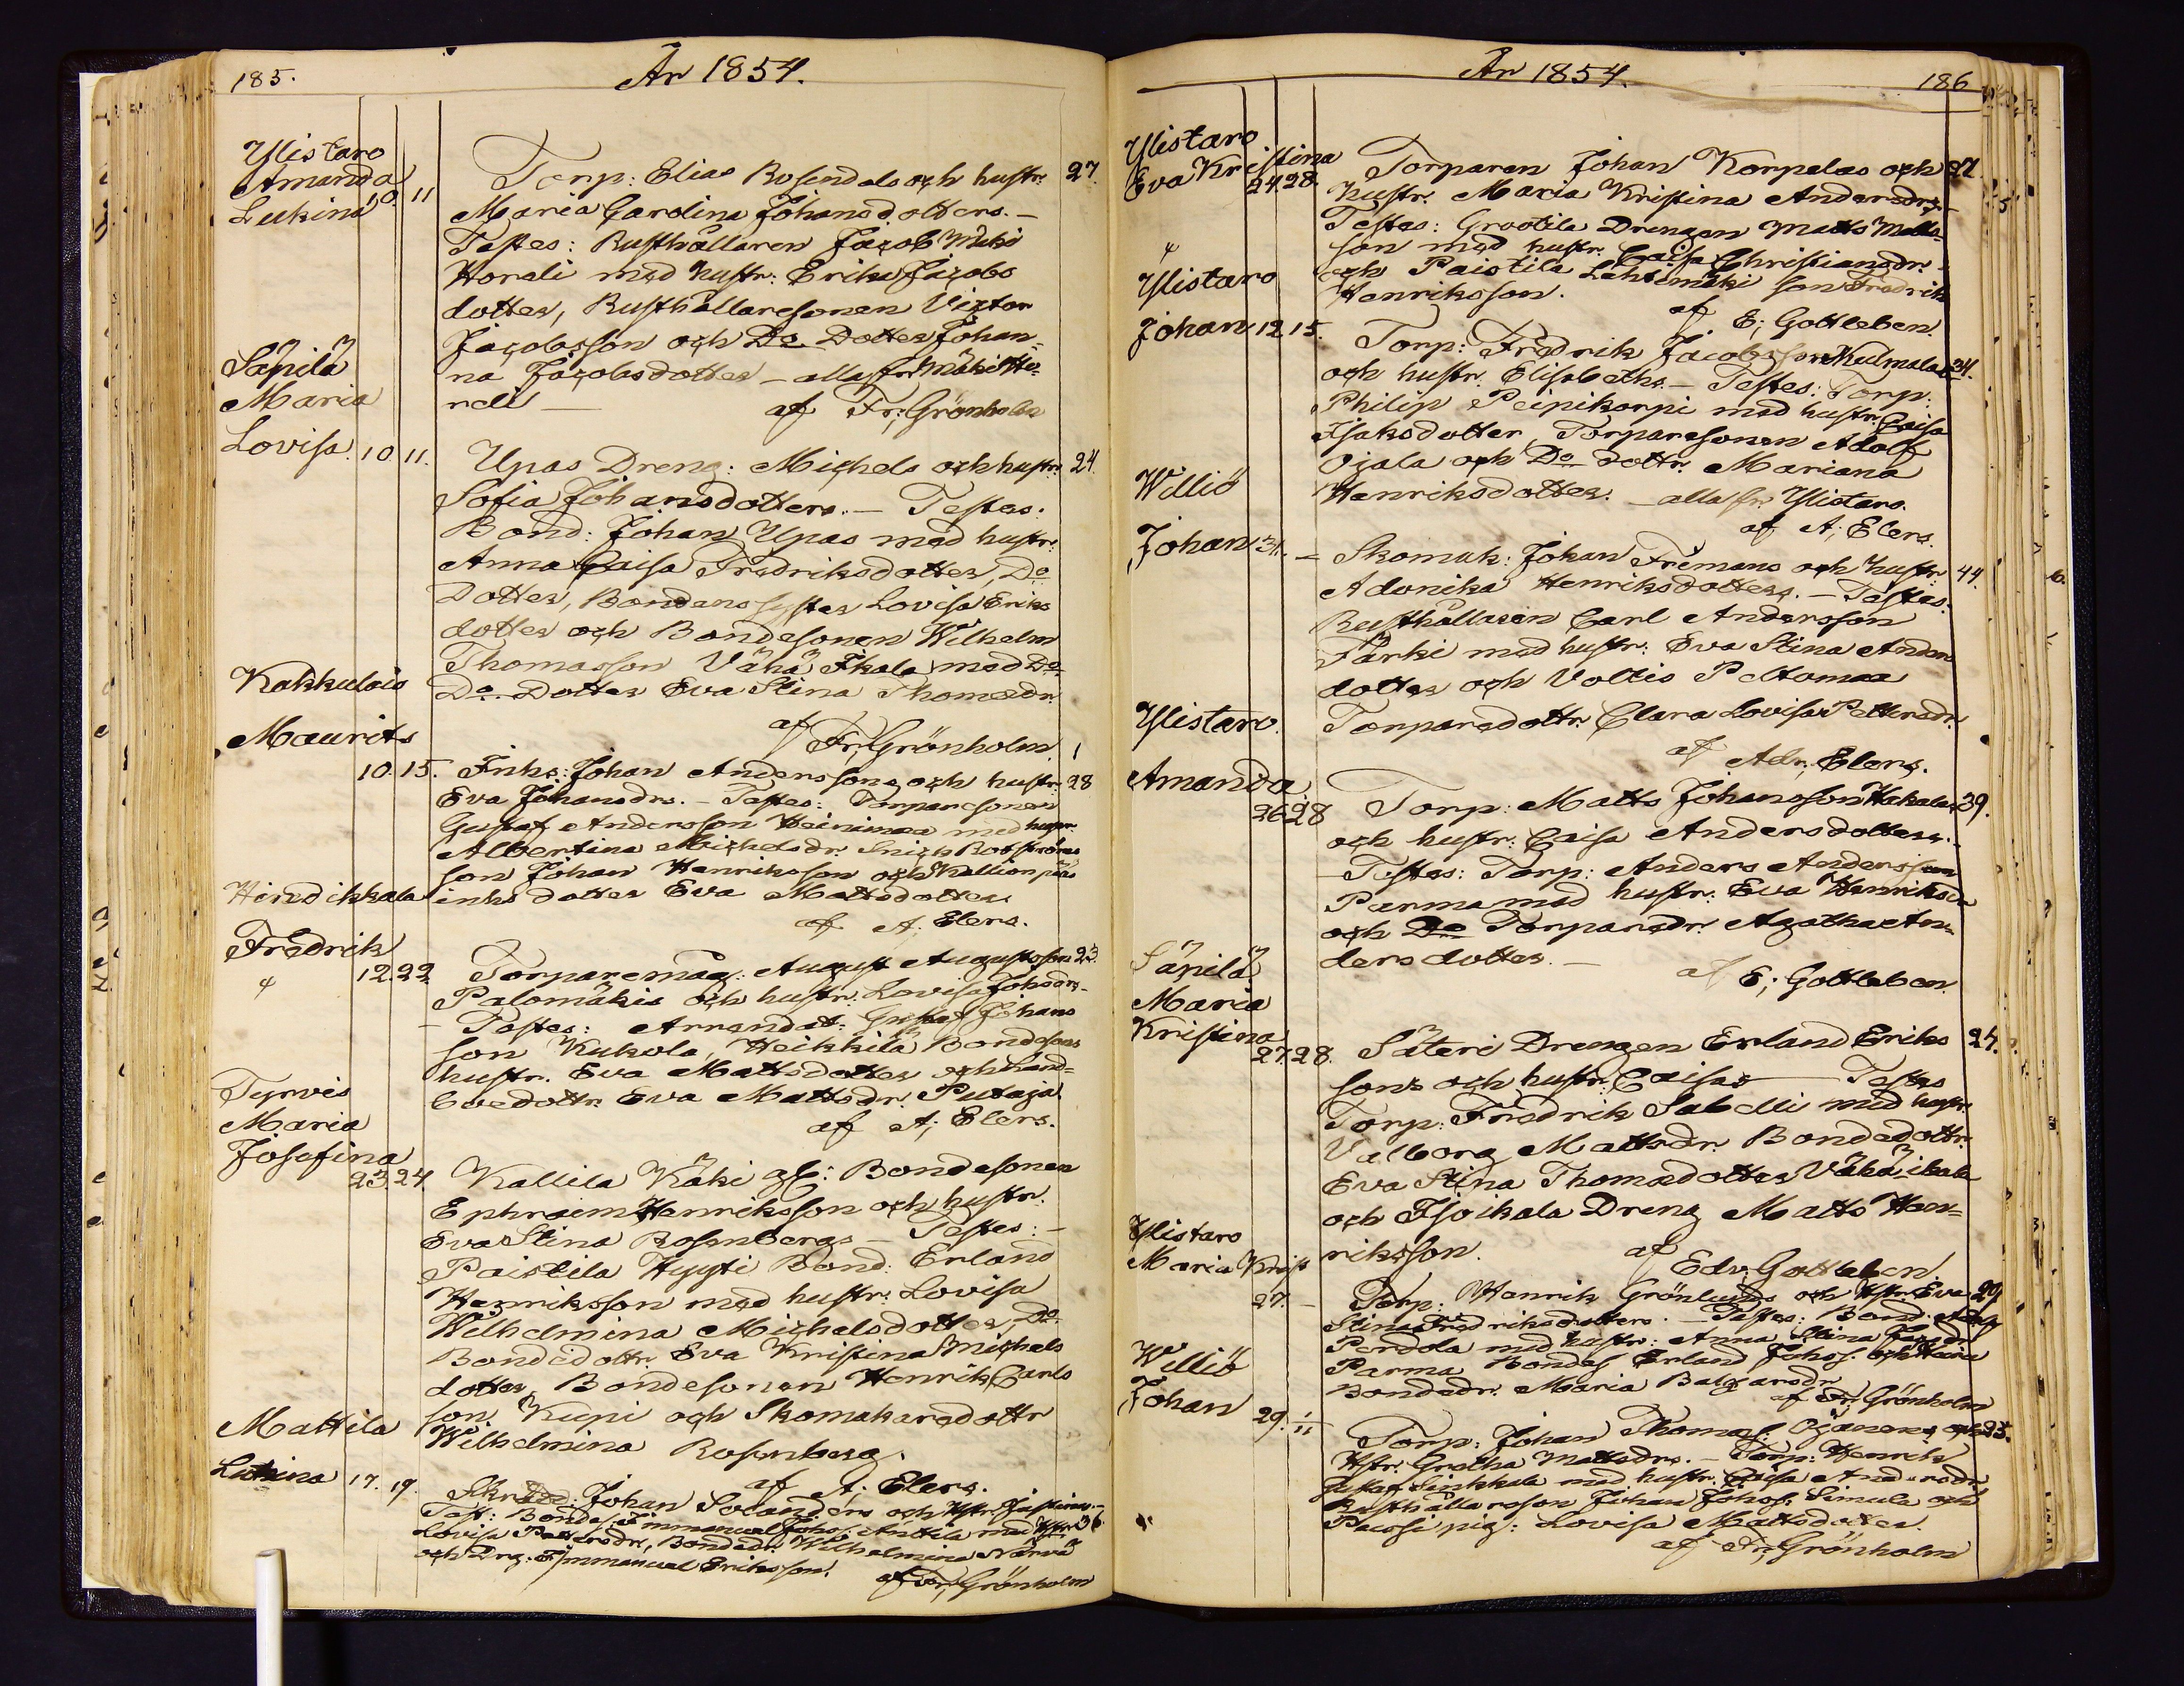 185.
År 1854.
Ylistaro
Amanda
Lukina 10. 11
Torp: Elias Rosendals och hustr: 27.
Maria Carolina Johansdotters. —
Testes: Rusthållaren Jacob Mäki
Horeli med hustr: Erika Jacobs
dotter, Rusthållaresonen Victor
Jacobsson och Do Dotter Johan=
na Jacobsdotter — alla fr. Mäki Ho=
reli — af Fr; Grönholm
Säpilä
Maria
Lovisa. 10 11.
Upas Dreng: Michels och hustr: 24.
Sofia Johansdotters. — Testes.
Bond: Johan Upas med hustr:
Anna Caisa Fredriksdotter, Do
Dotter, Bondens syster Lovisa Eriks
dotter och Bondesonen Wilhelm
Thomasson Vähä Ikala med Do
Do Dotter Eva Stina Thomædr.
af Fr; Grönholm
Kakkulais
Maurits
10. 15.
Inhs: Johan Anderssons och hustr: 28
Eva Johansdrs. — Testes: Torparesonen
Gustaf Andersson Heinimaa med hustr.
Albertina Michelsdr. Snick Bobströms
son Johan Henriksson och Kallion pää
inhs dotter Eva Mattsdotter
af A. Elers.
Hirvikkala
Fredrik
12. 22
Torparemåg: August Augustsson 23.
Palomäkis och hustr: Lovisa Johsdrs.
— Testes: Arrendat: Gustaf Johans
son Kukola, Heikkilä Bondesons
hustr. Eva Mattsdotter och Land=
boedottr. Eva Mattsdr. Putaja.
af A; Elers.
Tyrvis
Maria
Josefina
23. 24.
Kallila Käki gl: Bondesonen
Ephraim Henriksson och hustr.
Eva Stina Rosenbergs — Testes: —
Paistila Hyyti Bond: Erland
Henriksson med hustr: Lovisa
Wilhelmina Michelsdotter, Do
Bondedottr. Eva Kristina Michels
dotter, Bondesonen Henrik Carls
son Kupi och Skomakaredottr
Wilhelmina Rosenberg.
af A; Elers.
Mattila
Lukina 17. 19.
Skrædd: Johan Solanders och Hstr. Justina. —
Test: Bondas. Immanuel Johs: Anttila med Hstr. 36
Lovisa Pettersdr, Bondedr. Wilhelmina Närvä
och Drg. Immanuel Eriksson.
af Fr; Grönholm
År 1854.
186
Ylistaro
Eva Kristina
24. 28.
Torparen Johan Korpelas och 27.
hustr. Maria Kristina Andersdrs. —
Testes: Grootila Drengen Matts Matts=
son med hustr. Caisa Christiansdr.
och Paistila Lehtimäki son Fredrik
Henriksson.
af E; Gottleben.
Ylistaro
Johan 12. 15.
Torp: Fredrik Jacobsson Kulmalas 34.
och hustr: Elisabeths. — Testes: Torp:
Philip Peipikorpi med hustr. Caisa
Isaksdotter, Torparesonen Adolf
Ojala och Do dottr. Mariana
Henriksdotter. — alla fr. Ylistaro.
af A; Elers.
Williö
Johan 31. —
Skomak: Johan Fremans och hustr: 44.
Adonika Henriksdotters. — Testes:
Rusthållaren Carl Andersson
Färki med hustr: Eva Stina Anders
dotter och Voltis Peltomaa
Torparedottr. Clara Lovisa Pettersdr.
af Adr; Elers.
Ylistaro.
Amanda
26 28
Torp: Matts Johansson Hakalas 39.
och hustr: Caisa Andersdotters.
— Testes: Torp: Anders Andersson
Parma med hustr: Eva Henriksdr
och Do Torparedr. Agatha An=
dersdotter. —
af E; Gottleben.
Säpilä
Maria
Kristina
27. 28.
Säteri Drengen Erland Eriks 24.
sons och hustr: Caisas — Testes
Torp: Fredrik Sabelli med hustr.
Valborg Mattsdr. Bondedottr.
Eva Stina Thomædotter Vähä ikala
och Isoikala Dreng Matts Hen=
riksson.
af Edv. Gottleben
Ylistaro
Maria Krist
27. —
Torp: Henrik Grönlunds och Hstr. Eva 29
Stina Fredriksdotters. — Testes: Bond. Adolf
Perdola med hustr: Anna Stina
Parma Bondes. Erland Johss. och
Bondedr. Maria
af Fr; Grönholm
Williö
Johan 29. 1/11
Torp: Johan Thomas: Ojanens och 35.
Hstr. Gretha Mattsdrs. — Torp: Henrik
Gustaf Sinkkala med hustr. Caisa Andersdr
Rusthållareson Johan Johss: Simula och
Paussi pig: Lovisa Mattsdotter.
af Fr; Grönholm